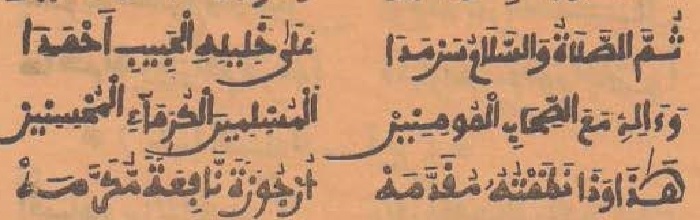 ثُمَّ الصَّلَاةُ وَالسَّلَامُ سَرْمَدَا عَلَىٰ خَلِيلِهِ الْحَبِيبِ أَحْمَدَا
وَءَالِهِ مَعَ الصِّحَابِ الْمُومِنِينْ الْمُسْلِمِينَ الْكُرَمَاءِ الْمُحْسِنِينْ
هَذَا وَذَا نَظَمْتُهُ مُقَدِّمَهْ أُرْجُوزَةً نَافِعَةً مُكَرَّمَهْ